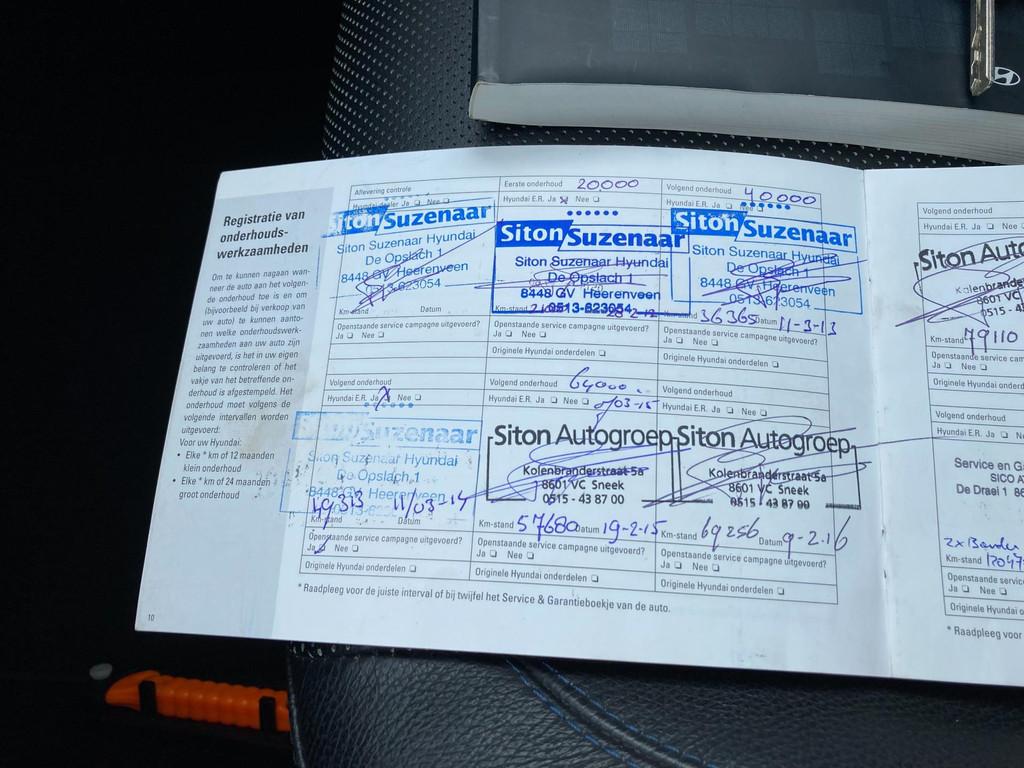 Registratie van
onderhouds-
werkzaamheden
Om te kunnen nagaan wan-
neer de auto aan het volgen-
de onderhoud toe is en om
(bijvoorbeeld bij verkoop van
uw auto) te kunnen aanto-
nen welke onderhoudswerk-
zaamheden aan uw auto zijn
uitgevoerd, is het in uw eigen
belang te controleren of het
vakje van het betreffende on-
derhoud is afgestempeld. Het
onderhoud moet volgens de
volgende intervallen worden
uitgevoerd:
Voor uw Hyundai:
• Elke * km of 12 maanden
klein onderhoud
• Elke * km of 24 maanden
groot onderhoud
10
Aflevering controle
Hyundai dealer Ja Nee
Siton Suzenaar
Siton Suzenaar Hyundai
De Opslach 1
8448 GV Heerenveen
0513-623054
Km-stand Datum
Openstaande service campagne uitgevoerd?
Ja Nee
Eerste onderhoud 20000
Hyundai E.R. Ja Nee
Siton Suzenaar
Siton Suzenaar Hyundai
De Opslach 1
8448 GV Heerenveen
0513-623054
Km-stand
Openstaande service campagne uitgevoerd?
Ja Nee
Originele Hyundai onderdelen
Volgend onderhoud 40000
Hyundai E.R. Ja Nee
Siton Suzenaar
Siton Suzenaar Hyundai
De Opslach 1
8448 GV Heerenveen
0513-623054
36365 Datum 11-3-13
Openstaande service campagne uitgevoerd?
Ja Nee
Originele Hyundai onderdelen
Volgend onderhoud
Hyundai E.R. Ja Nee
Suzenaar
Siton Suzenaar Hyundai
De Opslach 1
8448 GV Heerenveen
0513-623054
49313 11/03-14
Km-stand Datum
Openstaande service campagne uitgevoerd?
Ja Nee
Originele Hyundai onderdelen
Volgend onderhoud 64000
Hyundai E.R. Ja Nee 03-15
Siton Autogroep
Kolenbranderstraat 5a
8601 VC Sneek
0515 - 43 87 00
Km-stand 57680 Datum 19-2-15
Openstaande service campagne uitgevoerd?
Ja Nee
Originele Hyundai onderdelen
Volgend onderhoud
Hyundai E.R. Ja Nee
Siton Autogroep
Kolenbranderstraat 5a
8601 VC Sneek
0515 - 43 87 00
Km-stand 69256 Datum 9-2-16
Openstaande service campagne uitgevoerd?
Ja Nee
Originele Hyundai onderdelen
* Raadpleeg voor de juiste interval of bij twijfel het Service & Garantieboekje van de auto.
Volgend onderhoud
Hyundai E.R. Ja Nee
Siton Auto
Kolenbrande
8601 VC
0515 - 43
Km-stand 79110
Openstaande service cam
Ja Nee
Originele Hyundai onderd
Volgend onderhoud
Hyundai E.R. Ja N
Service en Ga
SICO A
De Draei 1 86
2x Banden
Km-stand 12047
Openstaande service
Ja Nee
Originele Hyundai o
* Raadpleeg voor